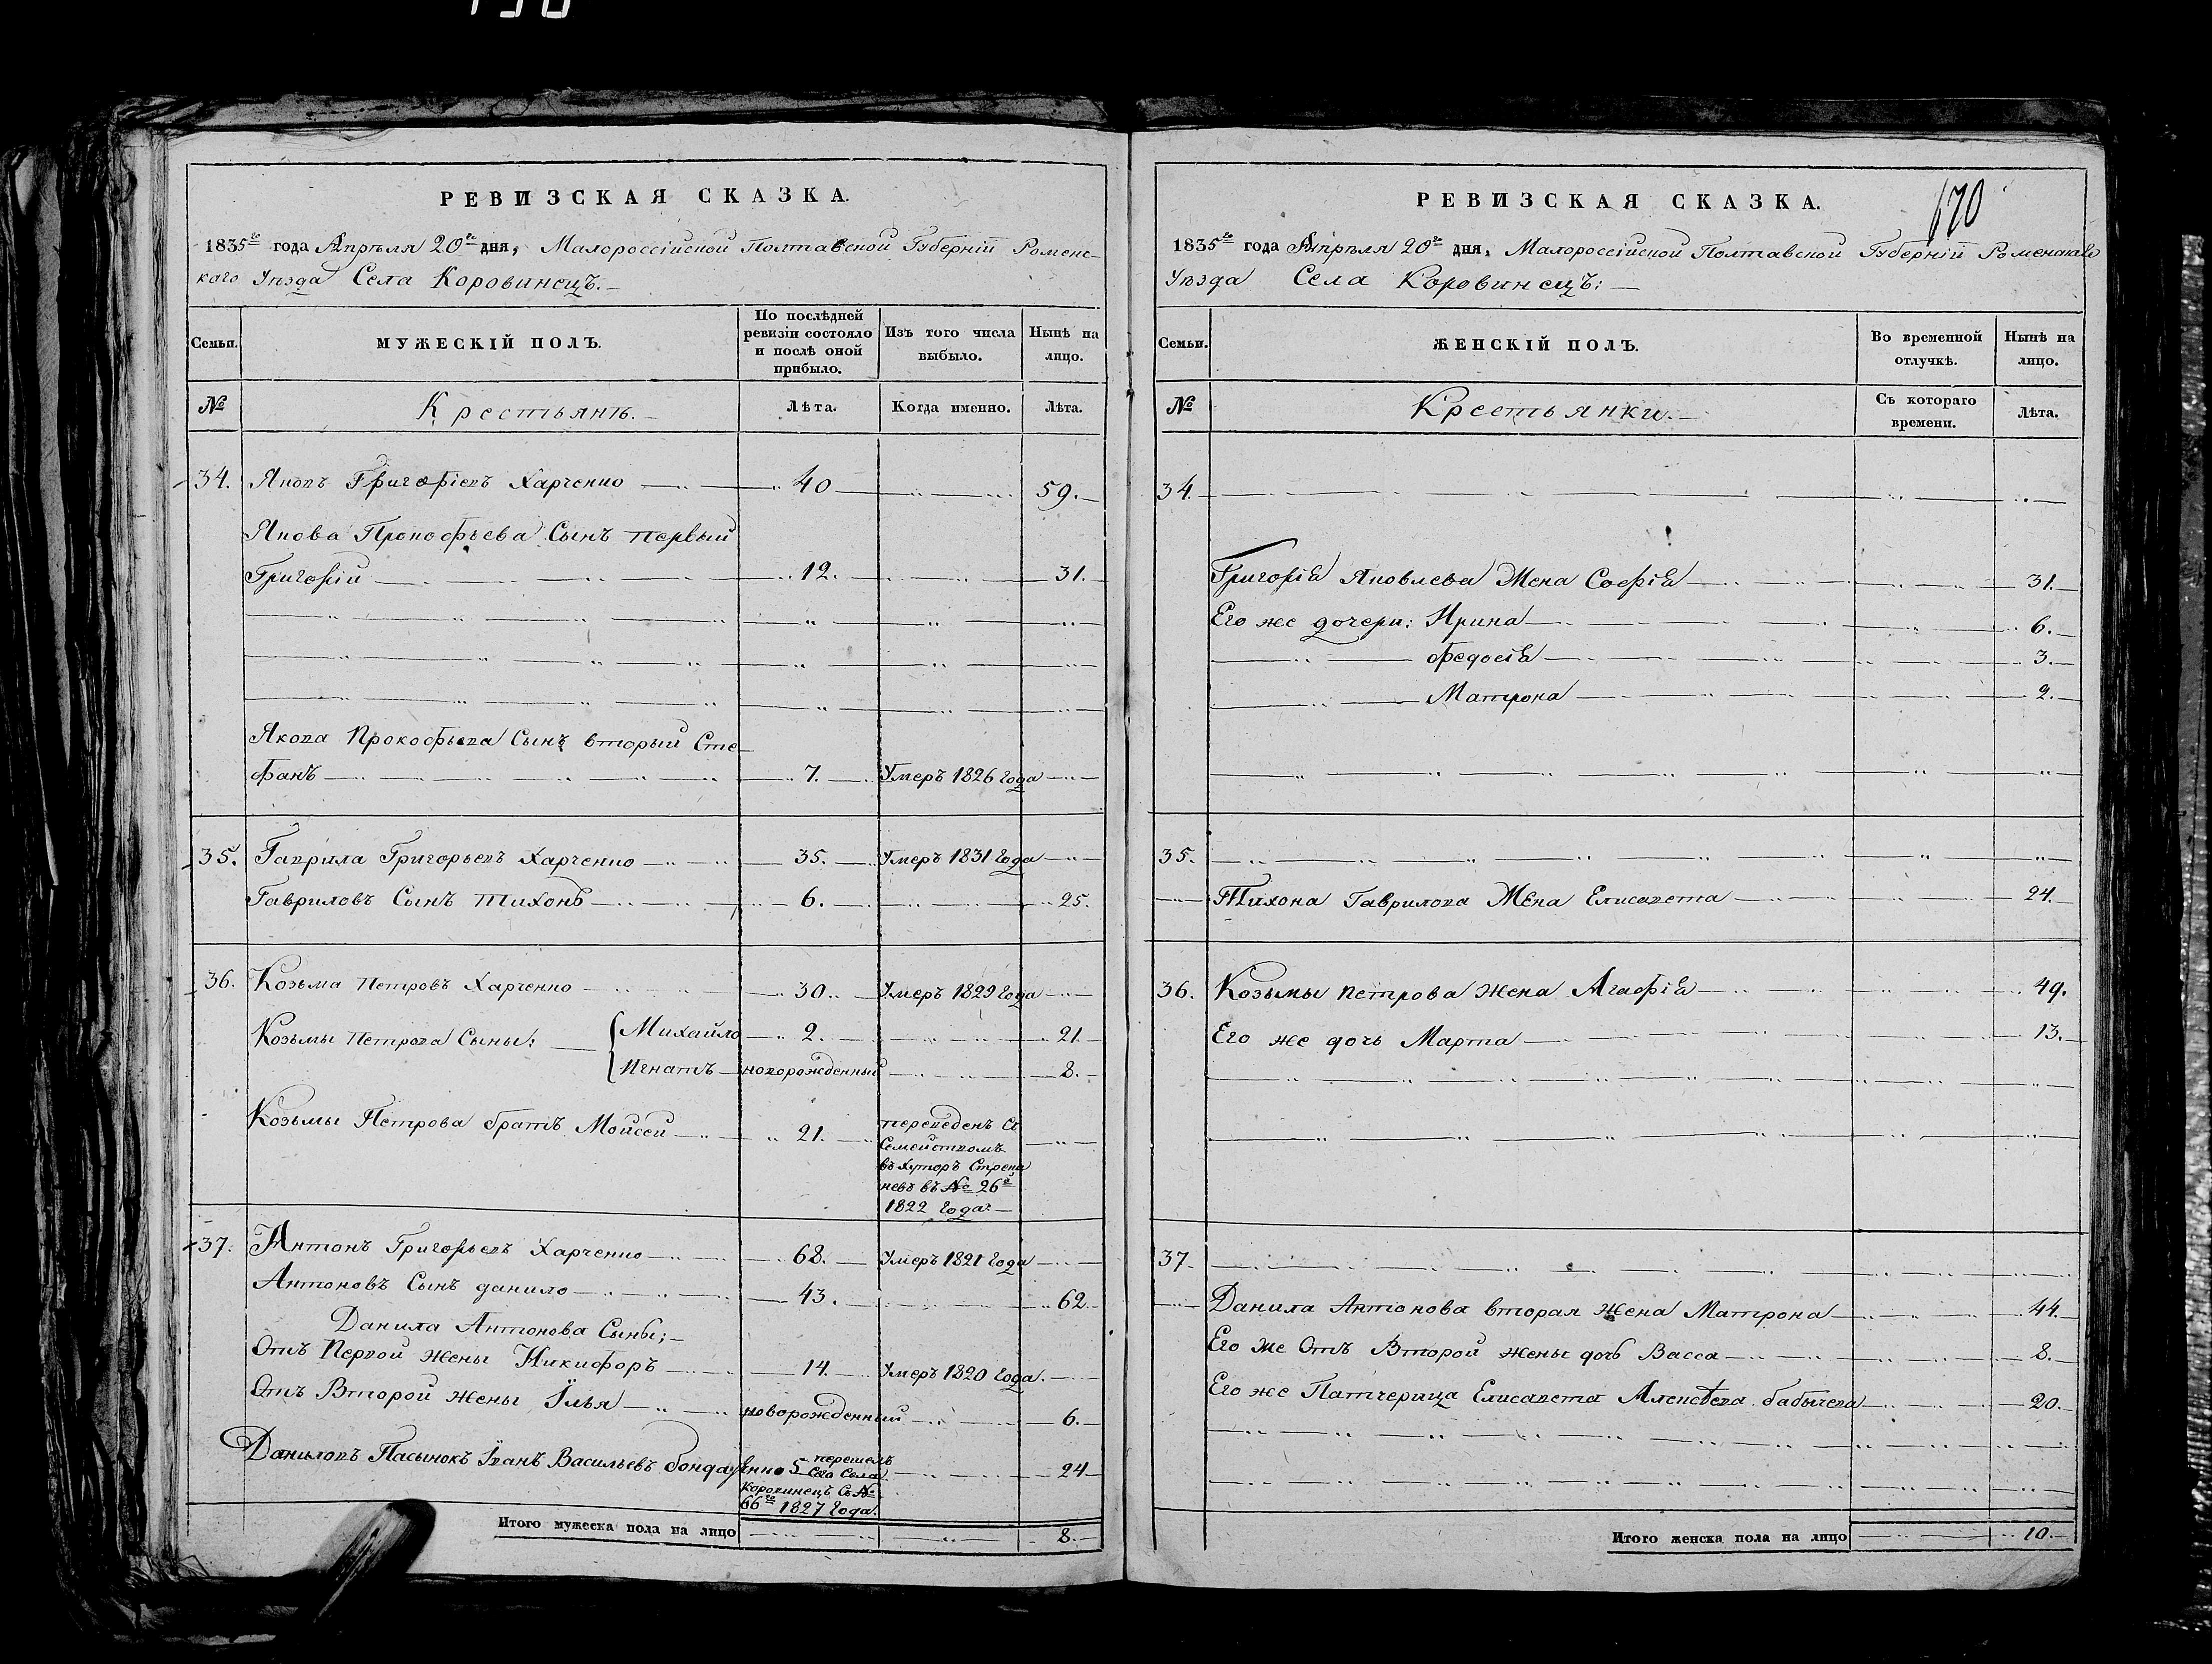 РЕВИЗСКАЯ СКАЗКА.
1835го года Апрѣля 20го дня, Малороссійской Полтавской Губерніи Роменс-
кого Уѣзда Села Коровинецъ.
Семьи.
МУЖЕСКІЙ ПОЛЪ.
По послѣдней ревизіи состояло и послѣ оной прибыло.
Изъ того числа выбыло.
Нынѣ на лицо.
№
Крестьянѣ.
Лѣта.
Когда именно.
Лѣта.
34. Яковъ Григоріевъ Харченко 40 59.
Якова Прокофьева Сынъ первый
Григорій 12. 31.
Якова Прокофьева Сынъ вторый Сте
фанъ 7. Умеръ 1826 года
35. Гаврила Григорьевъ Харченко 35. Умеръ 1831 года
Гавриловъ Сынъ Тихонъ 6. 25.
36. Козьма Петровъ Харченко 30. Умеръ 1829 года
Козьмы Петрова Сыны: Михайло 2. 21.
Игнатъ новорожденный 8.
Козьмы Петрова братъ Моисей 21. переведенъ Съ
Семействомъ
въ Хуторъ
въ № 26й
1822 года.
37. Антонъ Григорьевъ Харченко 68. Умеръ 1821 года
Антоновъ Сынъ данило 43. 62
Данила Антонова Сыны;
Отъ Первой жены Никифоръ 14. Умеръ 1820 года.
Отъ Второй жены Ілья новорожденный 6.
Даниловъ Пасынокъ Іванъ Васильевъ бондаренко 5 перешелъ 24
Сего Села
Коровинецъ Съ №
66го 1827 года.
Итого мужеска пола на лицо 8.
РЕВИЗСКАЯ СКАЗКА.
170
1835го года Апрѣля 20го дня, Малороссійской Полтавской Губерніи Роменскаго
Уѣзда Села Коровинецъ:
Семьи.
ЖЕНСКІЙ ПОЛЪ.
Во временной отлучкѣ.
Нынѣ на лицо.
№
Крестьянки.
Съ котораго времени.
Лѣта.
34.
Григорія Яковлева Жена Софія 31.
Его же дочери: Ирина 6.
Федосія 3.
Матрона 2.
35.
Тихона Гаврилова Жена Елисавета 24.
36. Козьмы Петрова Жена Агафія 49.
Его же дочь Марта 13.
37.
Данила Антонова вторая жена Матрона 44.
Его же Отъ Второй жены дочь Васса 8.
Его же Патчерица Елисавета Алексѣева 20.
Итого женска пола на лицо 10.